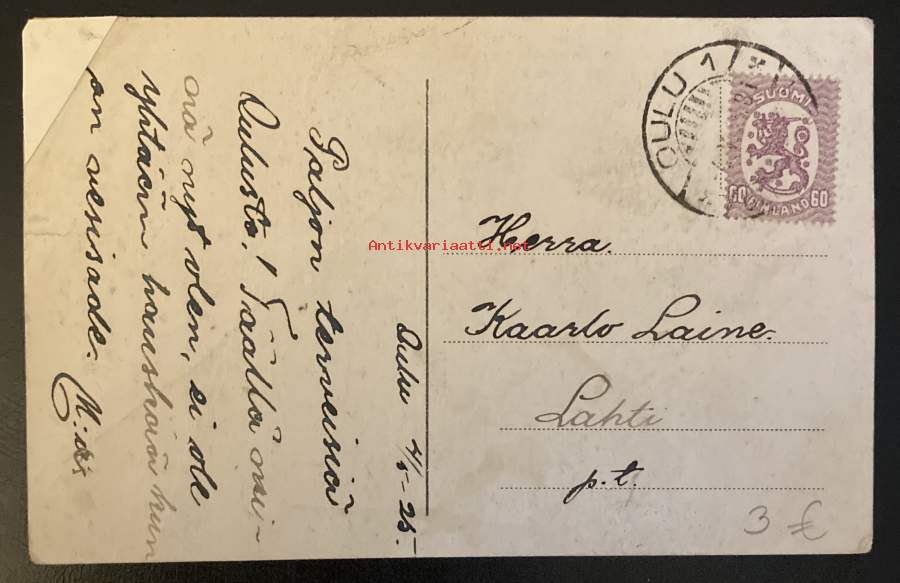 Oulu 4/5-25.-
Paljon terveisiä
Oulusta! Täällä mi-
nä nyt olen, ei ole
yhtään hauskaa kun
on vesisade.
OULU 1
SUOMI
60 FINLAND 60
Herra.
Kaarlo Laine.
Lahti
p.t.
3 €
Antikvariaatti.net